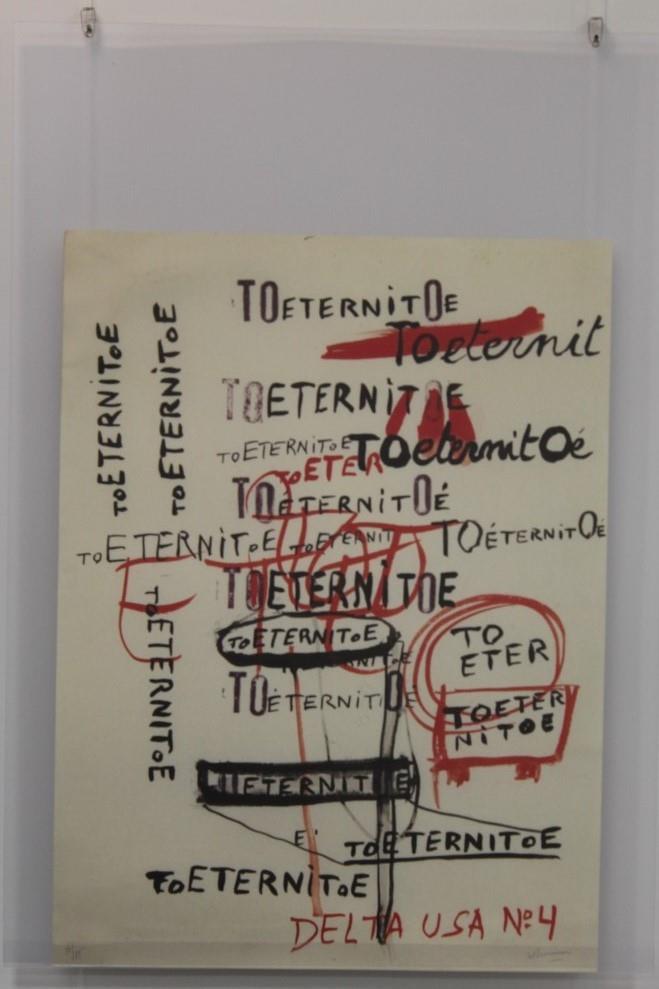 TOETERNITOE
Toeternit
TOETERNITOE
TOETERNITOE
TOeternitOé
TOETER
TOETERNITOÉ
TOETERNITOE
TOETERNIT
TOÉTERNITOÉ
TOETERNITOE
TOETERNITOE
TOETERNITOE
TOETERNITOE
TO
ETER
TOÉTERNITOE
TOETER
NITOE
TOETERNITOE
ETERNIT E
E'
TOETERNITOE
TOETERNITOE
DELTA USA Nº4